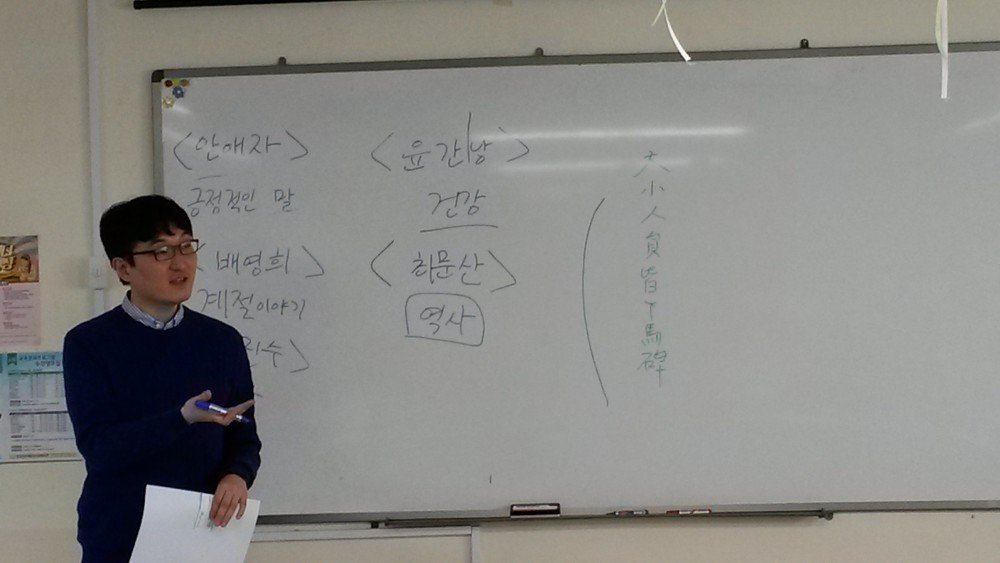 <안애자>
긍정적인 말
<배영희>
계절이야기
수>
<윤간낭>
건강
역사
大小人員皆下馬碑